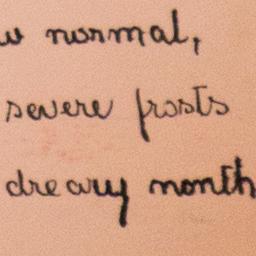 normal,
severe frosts
dreary month